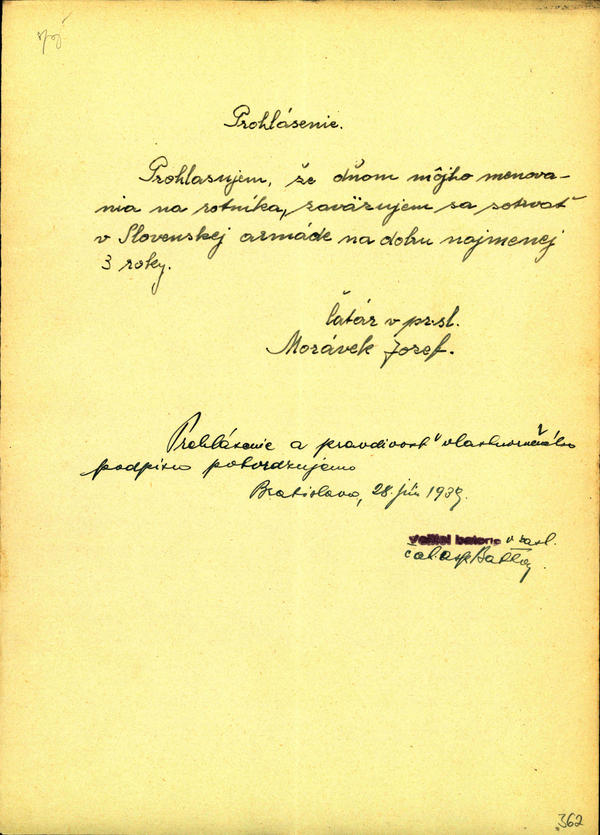 Prohlásenie.
Prohlasujem, že dňom môjho menova-
nia na rotníka, zaväzujem sa sotrvať
v Slovenskej armáde na dobu najmenej
3 roky.
čatár v pr.sl.
Morávek Jozef.
Prohlásenie a pravdivosť vlastnoručného
podpisu potvrdzujeme
Bratislava, 28. jún 1939.
Veliteľ baterie v zast.
362